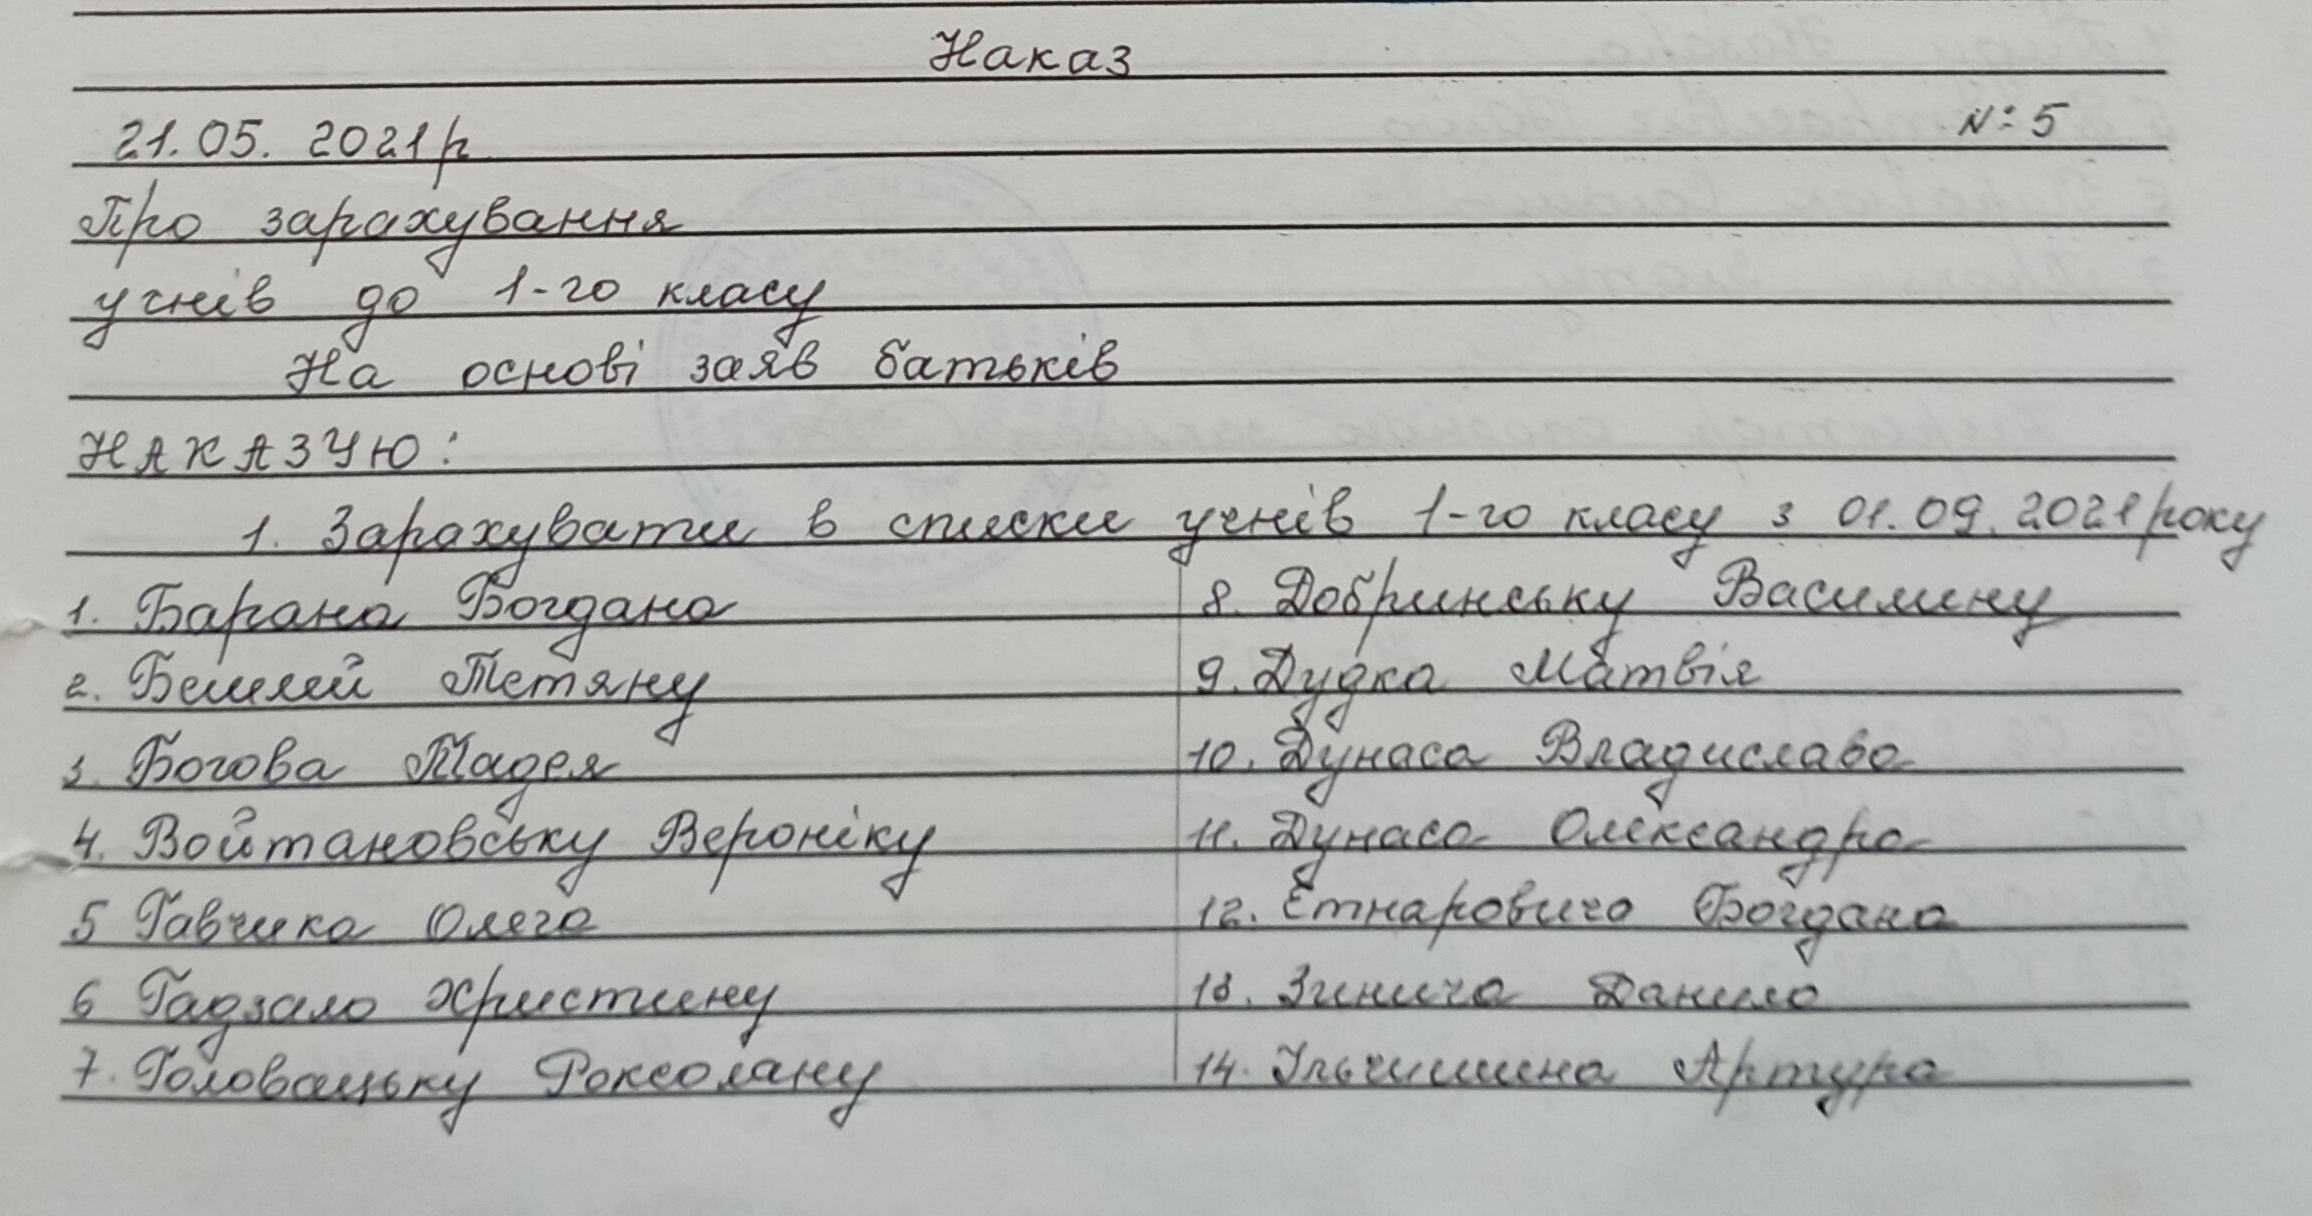 Наказ
21.05.2021р
№ 5
Про зарахування
учнів до 1-го класу
На основі заяв батьків
НАКАЗУЮ:
1. Зарахувати в списки учнів 1-го класу з 01.09.2021року
1. Барана Богдана
2. Бешлей Тетяну
3. Богова Тадея
4. Войтановську Вероніку
5 Гавчика Олега
6 Гадзало Христину
7. Головацьку Роксолану
8. Добринську Василину
9. Дудка Матвія
10. Дунаса Владислава
11. Дунаса Олександра
12. Етнаровича Богдана
13. Зинича Данила
14. Ільчишина Артура